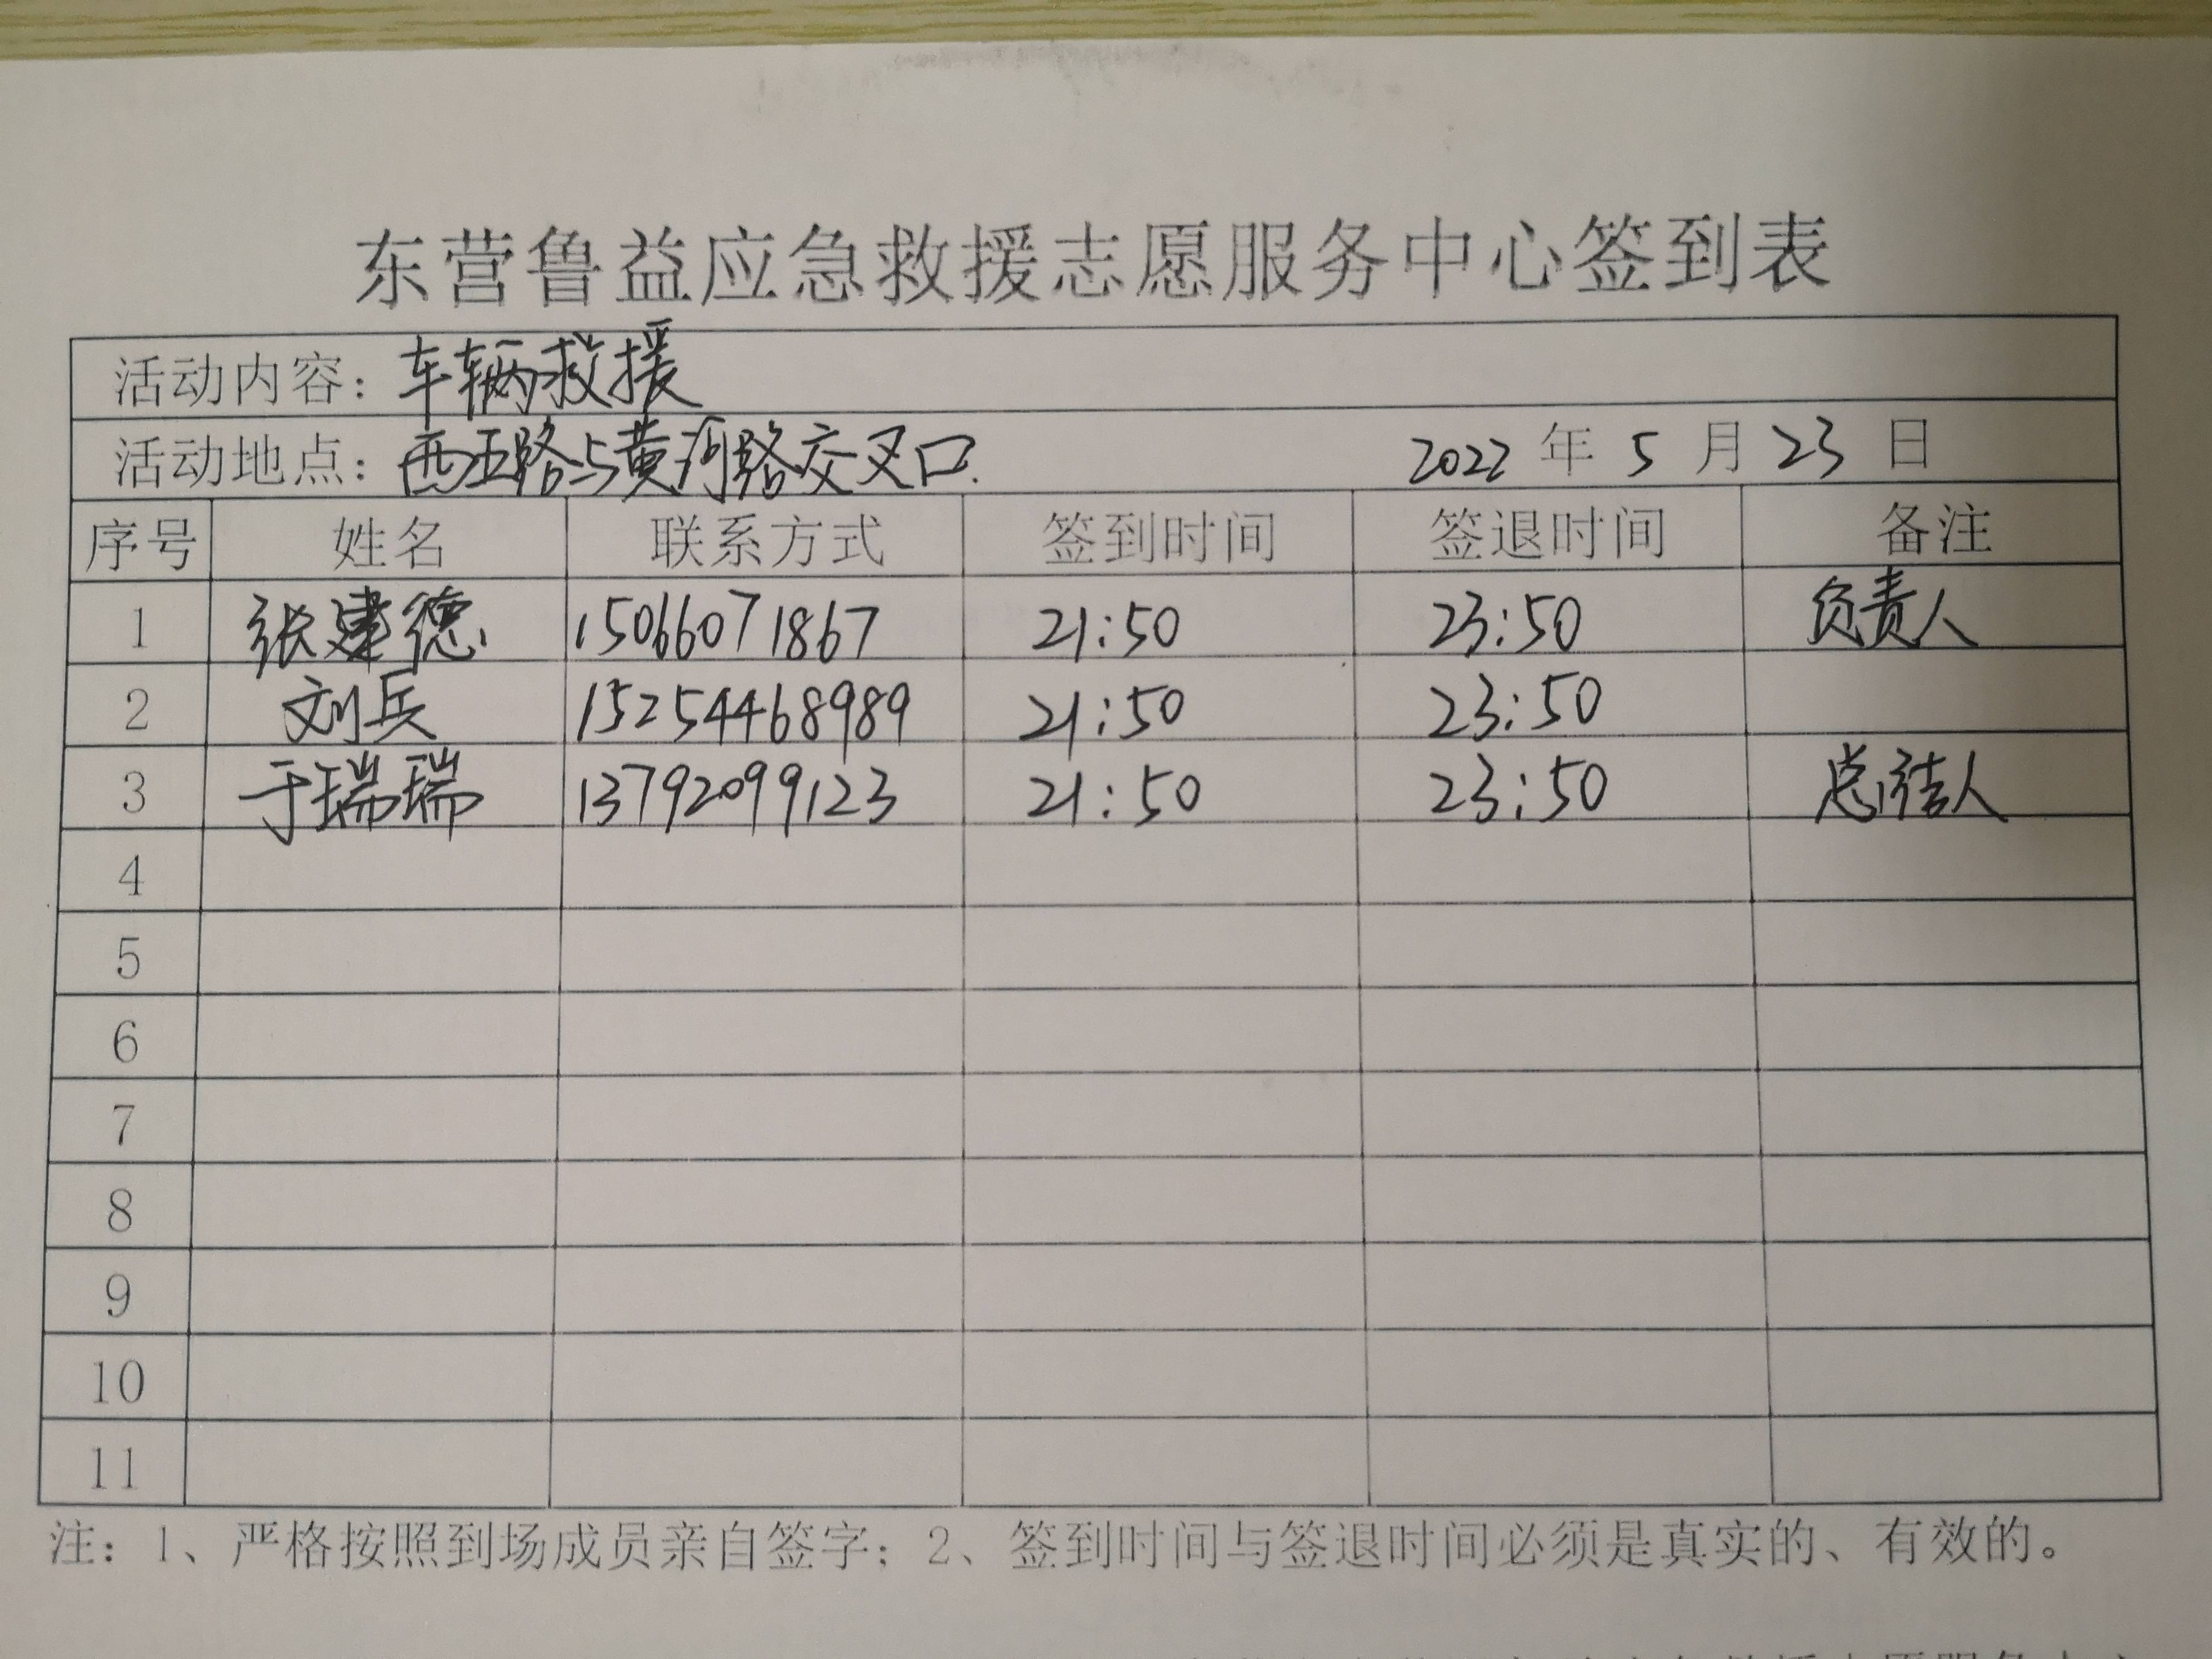 东营鲁益应急救援志愿服务中心签到表
活动内容：车辆救援
活动地点：西五路与黄河路交叉口. 2022 年 5 月 23 日
序号 姓名 联系方式 签到时间 签退时间 备注
1 张建德 15066071867 21:50 23:50 负责人
2 刘兵 15254468989 21:50 23:50
3 于瑞瑞 13792099123 21:50 23:50 总结人
4
5
6
7
8
9
10
11
注：1、严格按照到场成员亲自签字；2、签到时间与签退时间必须是真实的、有效的。